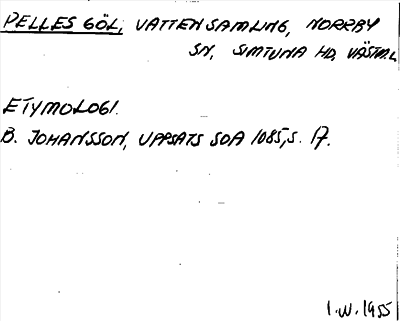 PELLES GÖL, VATTENSAMLING, NORRBY
SN, SIMTUNA HD, VÄSTM.L.
ETYMOLOGI.
B. JOHANSSON, UPPSATS SOA 1085, S. 17.
I.W. 1955